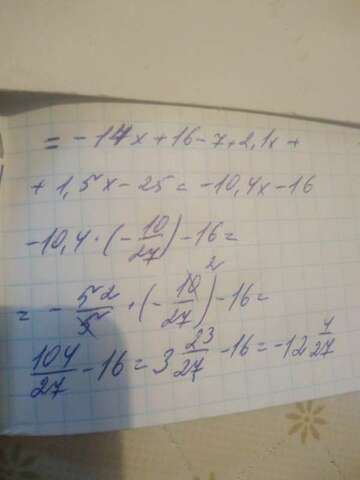 = -14x + 16 - 7 + 2,1x +
+ 1,5x - 25 = -10,4x - 16
-10,4 · (-10/27) - 16 =
= - 52/5 · (-10/27)² - 16 =
104/27 - 16 = 3 23/27 - 16 = -12 4/27